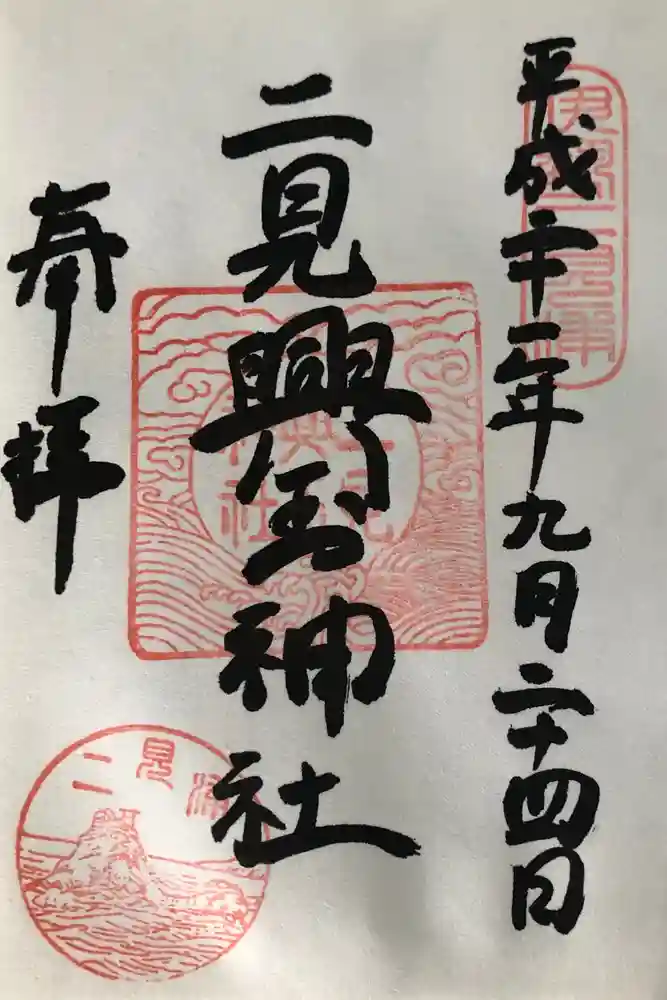 平成二十二年九月二十四日
二見興玉神社
奉拝
二見興玉神社
二見浦